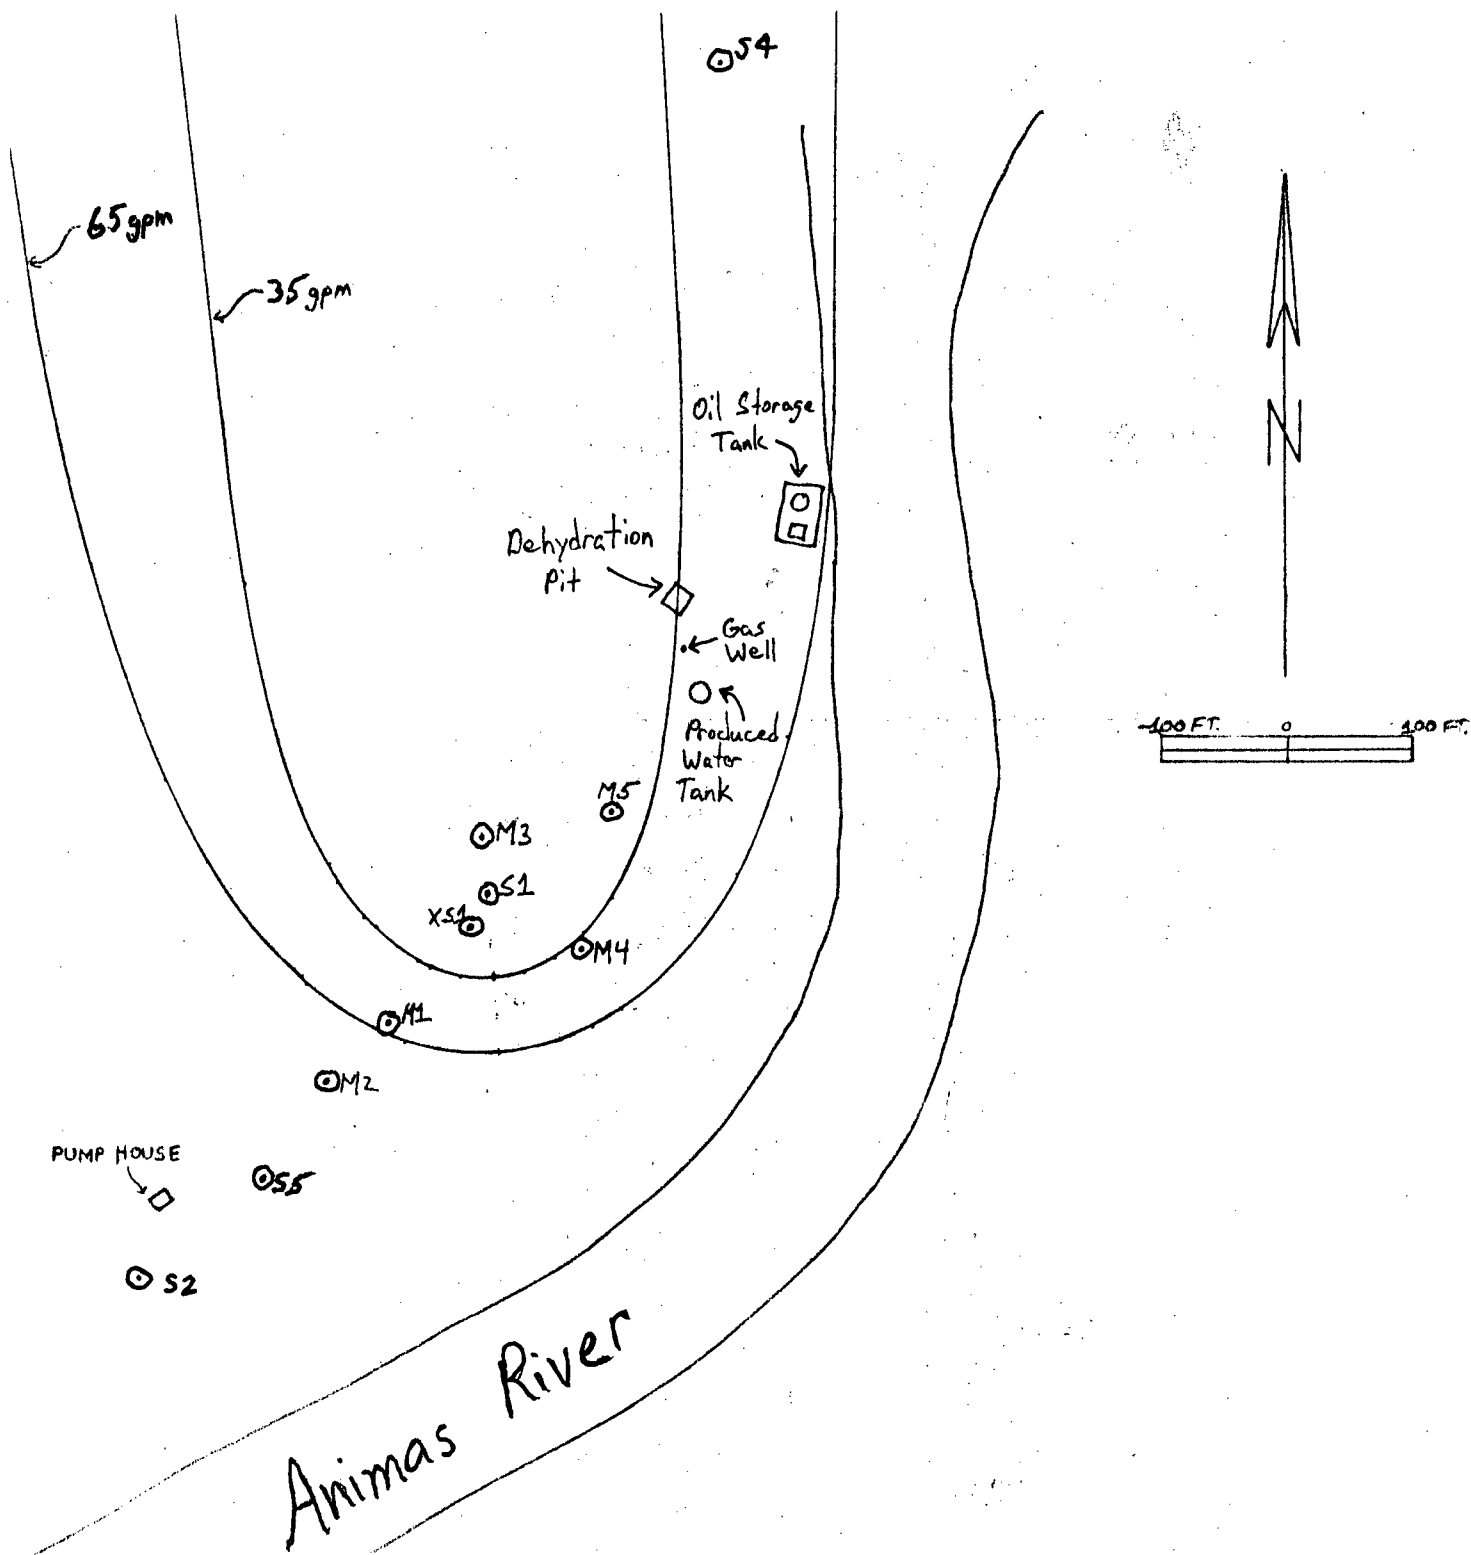 S4
65gpm
35gpm
Oil Storage
Tank
N
Dehydration
Pit
Gas
Well
Produced
Water
Tank
-100 FT. 0 100 FT.
M5
M3
S1
XS1
M4
M1
M2
PUMP HOUSE
S5
S2
Animas River